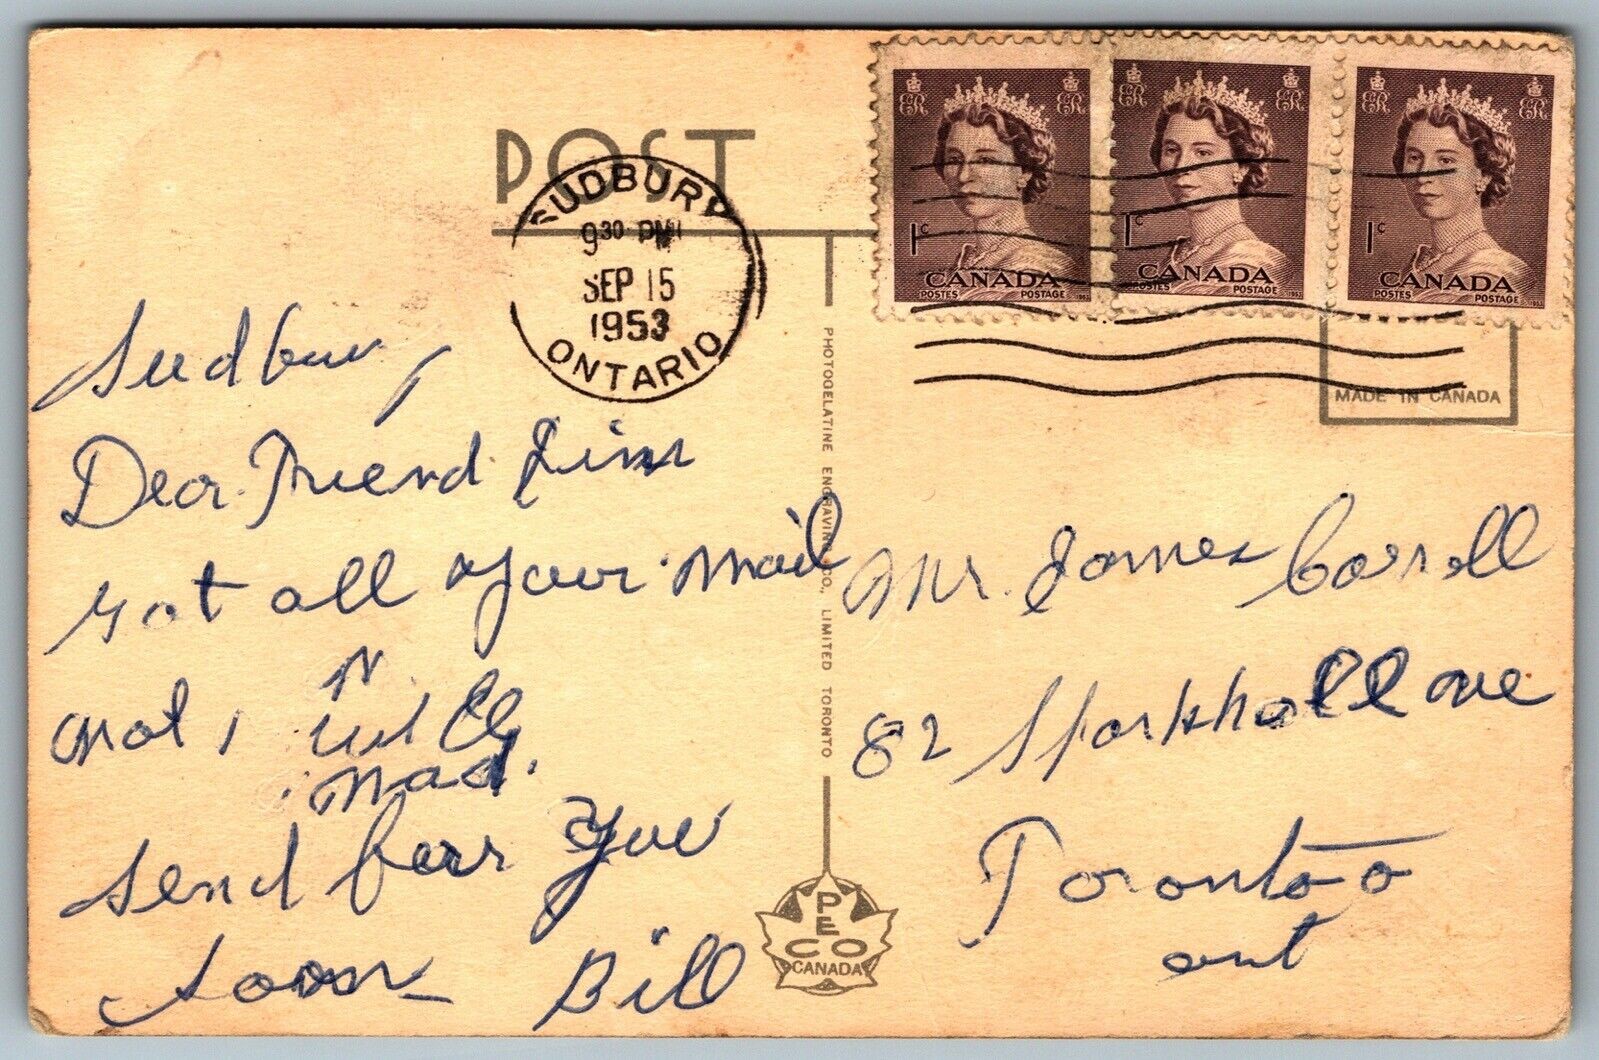 POST
SUDBURY
9 30 PM
SEP 15
1953
ONTARIO
ER ER
1c
CANADA
POSTES POSTAGE 1953
ER ER
1c
CANADA
POSTES POSTAGE 1953
ER ER
1c
CANADA
POSTES POSTAGE 1953
MADE IN CANADA
Sudbury
Dear Friend Jim
got all your mail
send you
soon Bill
PHOTOGELATINE ENGRAVING CO., LIMITED TORONTO
PECO
CANADA
Mr. James Carroll
82 Sparkhall ave
Toronto
ont